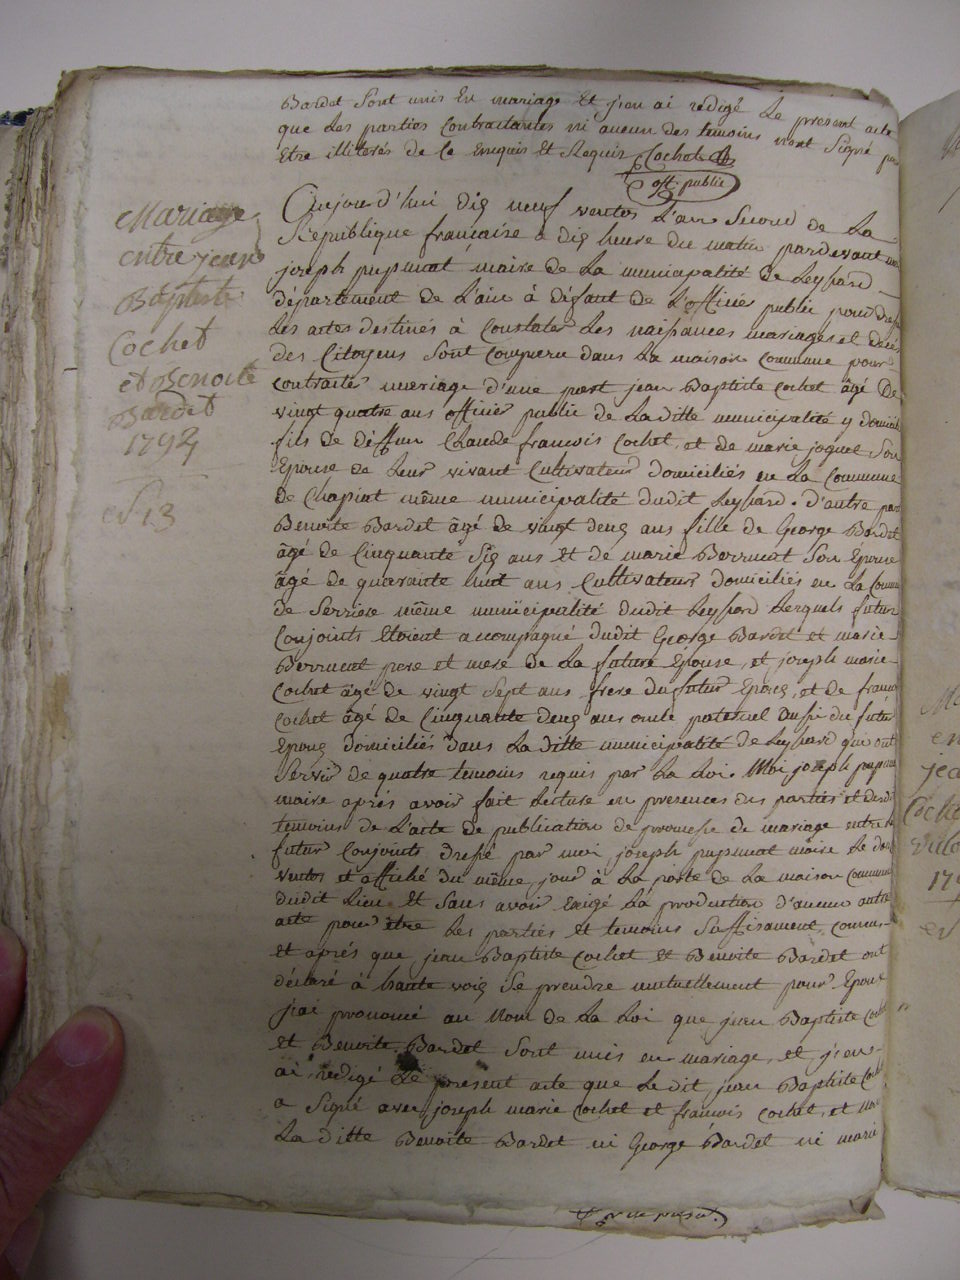 Bardet sont unis En mariage Et j'en ai redigé Le present acte
que Les parties Contractantes ni aucun des temoins n'ont Signé pour
Etre illiterés de Ce Enquis Et Requis Cochet
off. public
Mariage
entre jean
Baptiste
Cochet
et Benoite
Bardet
1794
N 13
Cejourd'hui dix neuf ventos L'an Second de La
République française a dix heure du matin pardevant moi
joseph pupunat maire de La municipalité de Leyssard
département de L'ain à défaut de L'officier public pour dresser
Les actes destinés à Constater Les naissances mariages et décés
des Citoyens sont comparu dans La maison Commune pour
Contracter mariage d'une part jean Baptiste Cochet âgé De
vingt quatre ans officier public de La ditte municipalité y domicilié
fils de déffun Claude francois Cochet, et de marie joquet Son
Epouse de Leur vivant Cultivateur domiciliés en La Commune
de Chapiat même municipalité dudit Leyssard. d'autre part
Benoite Bardet âgé de vingt deux ans fille de George Bardet
âgé de Cinquante Six ans et de marie Berruent Son Epouse
âgé de quarante huit ans Cultivateur domiciliés en La Commune
de Serriere même municipalité dudit Leyssard Lesquels futur
Conjoints Etoient accompagné dudit George Bardet et marie
Berruent pere et mere de La future Epouse, et joseph marie
Cochet âgé de vingt Sept ans frere du futur Epoux, et de francois
Cochet âgé de Cinquante deux ans oncle paternel aussi du futur
Epoux domiciliés dans La ditte municipalité de Leyssard qui ont
Servir de quatre temoins requis par La Loi. Moi joseph pupunat
maire aprés avoir fait Lecture en presences des parties et desdits
temoins de L'acte de publication de promesse de mariage entre les
futur Conjoints Dressé par moi joseph pupunat maire Le douze
ventos et affiché du même jour à La porte de La maison Commune
dudit Lieu Et Sans avoir Exigé La production d'aucun autre
acte pour être Les parties et temoins Suffisament connus
et aprés que jean Baptiste Cochet et Benoite Bardet ont
déclaré à haute voix Se prendre mutuellement pour Epoux
j'ai prononcé au Nom de La Loi que jean Baptiste Cochet
et Benoite Bardet Sont unis en mariage, et j'en
ai redigé Le present acte que Le dit jean Baptiste Cochet
a Signé avec joseph marie Cochet et francois Cochet, et non
La ditte Benoite Bardet ni George Bardet ni marie